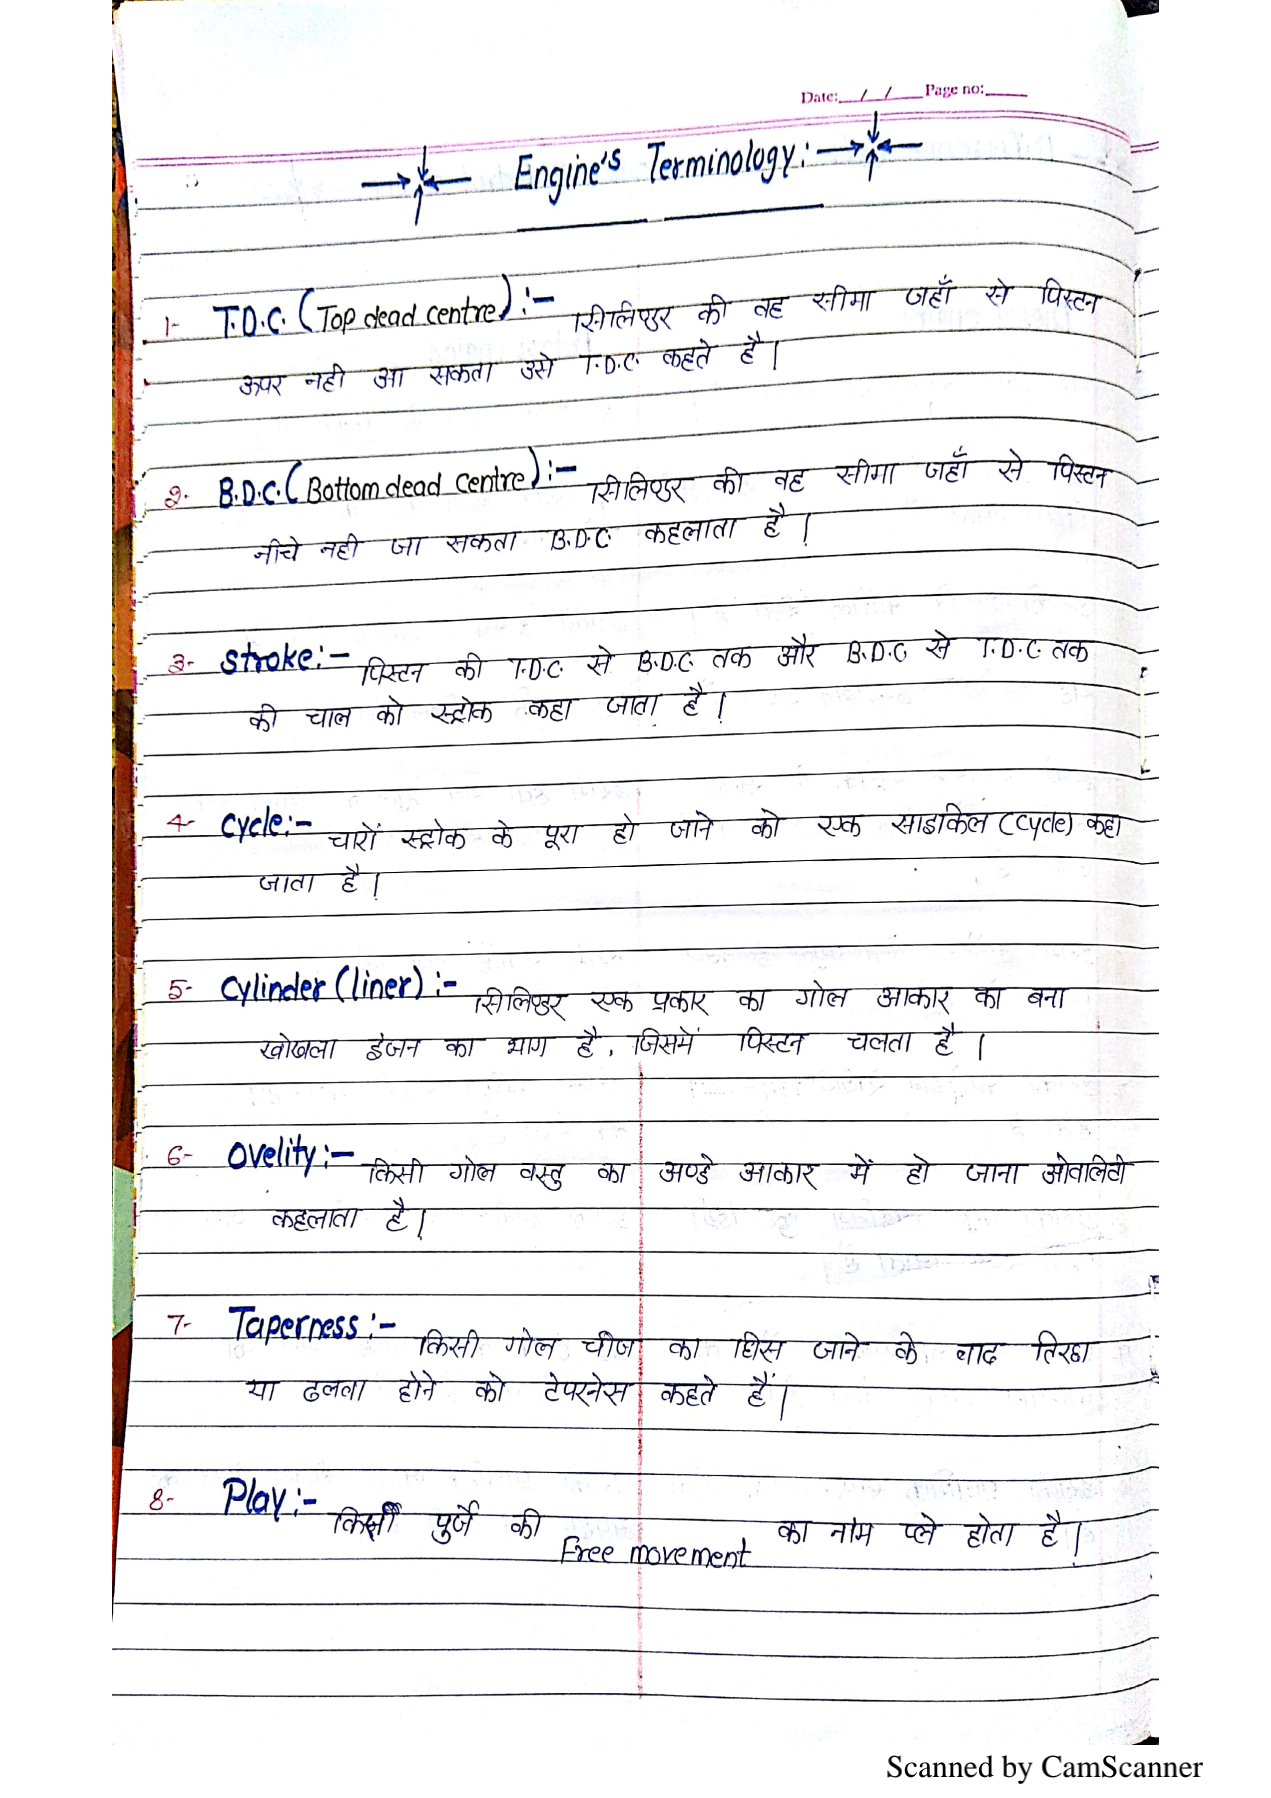 Date: __/__/____ Page no:____
Engine's Terminology:
1- T.D.C. (Top dead centre) :- सिलिण्डर की वह सीमा जहाँ से पिस्टन
ऊपर नही आ सकता उसे T.D.C. कहते है।
2- B.D.C. (Bottom dead centre) :- सिलिण्डर की वह सीमा जहाँ से पिस्टन
नीचे नही जा सकता B.D.C. कहलाता है।
3- stroke:- पिस्टन की T.D.C. से B.D.C. तक और B.D.C से T.D.C. तक
की चाल को स्ट्रोक कहा जाता है।
4- cycle:- चारों स्ट्रोक के पूरा हो जाने को एक साइकिल (cycle) कहा
जाता है।
5- cylinder (liner) :- सिलिण्डर एक प्रकार का गोल आकार का बना
खोखला इंजन का भाग है, जिसमें पिस्टन चलता है।
6- ovelity:- किसी गोल वस्तु का अण्डे आकार में हो जाना ओवालिटी
कहलाता है।
7- Taperness:- किसी गोल चीज का घिस जाने के बाद तिरछा
या ढलवा होने को टेपरनेस कहते हैं।
8- Play:- किसी पुर्जे की Free movement का नाम प्ले होता है।
Scanned by CamScanner